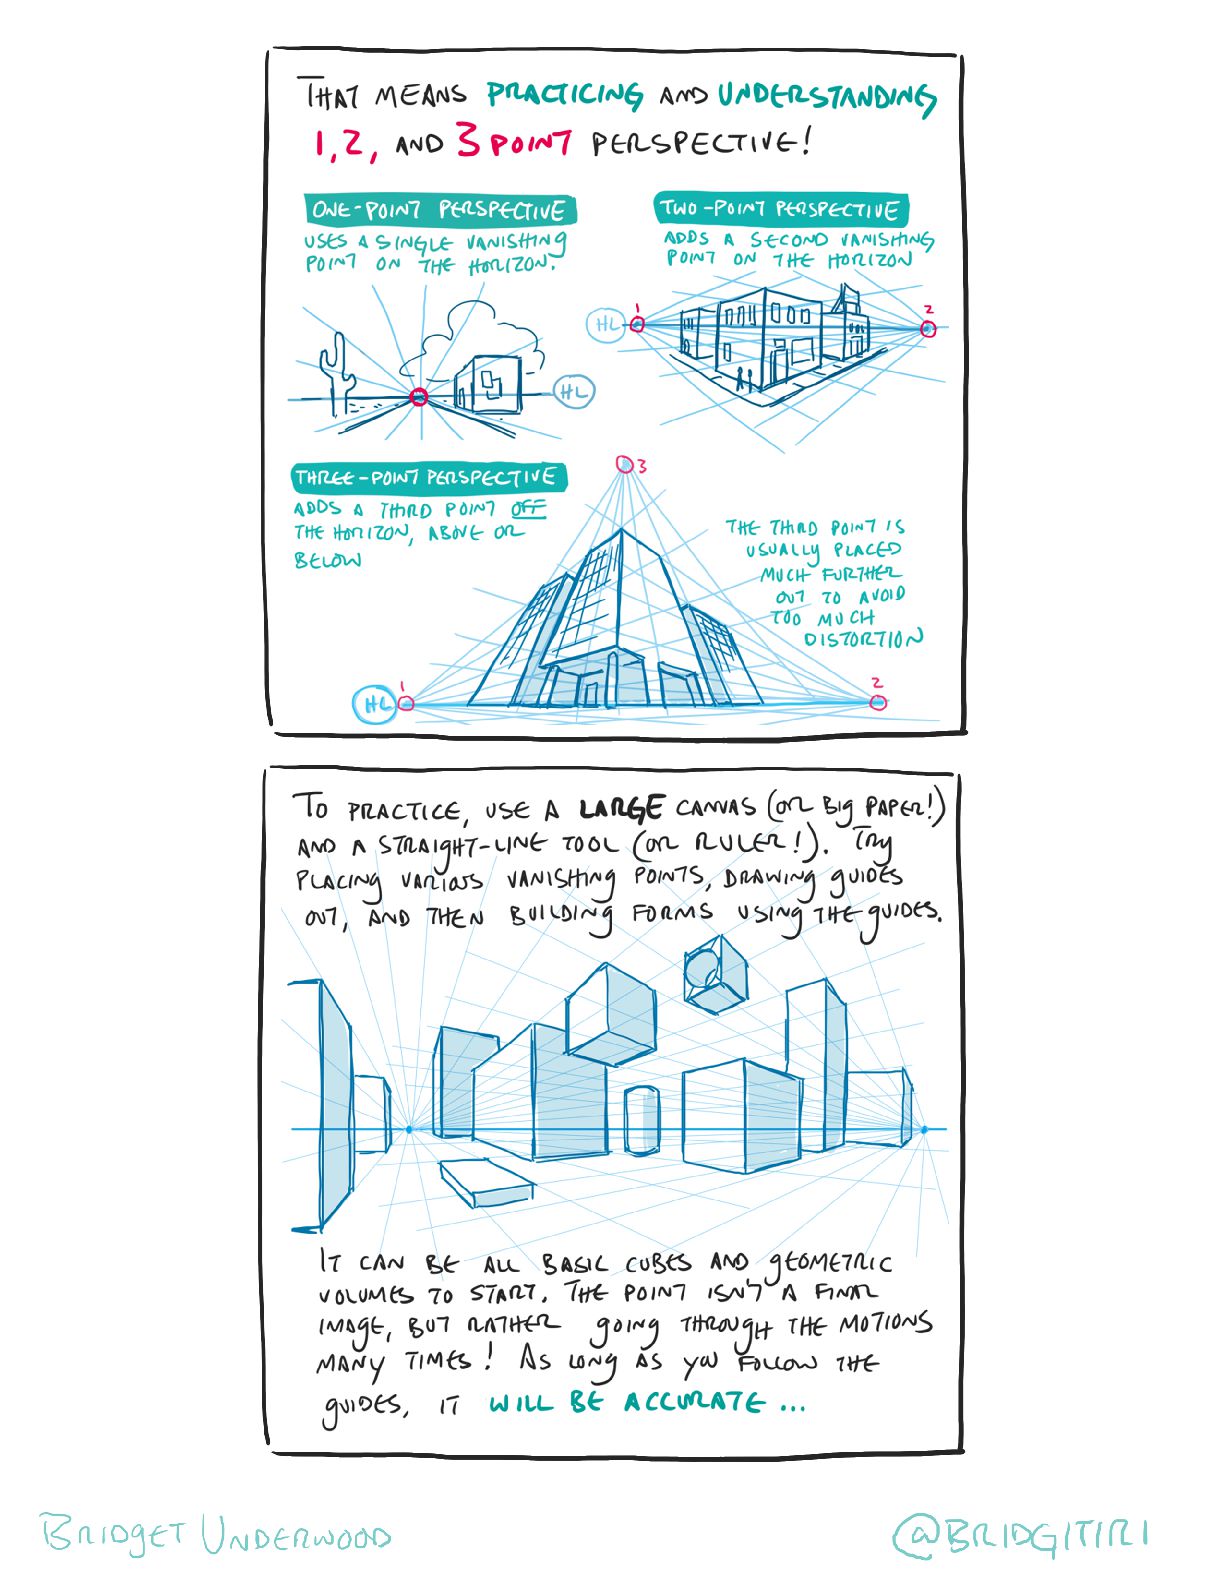 THAT MEANS PRACTICING AND UNDERSTANDING
1, 2, AND 3 POINT PERSPECTIVE!
ONE-POINT PERSPECTIVE
USES A SINGLE VANISHING
POINT ON THE HORIZON.
HL
TWO-POINT PERSPECTIVE
ADDS A SECOND VANISHING
POINT ON THE HORIZON
HL
1
2
THREE-POINT PERSPECTIVE
ADDS A THIRD POINT OFF
THE HORIZON, ABOVE OR
BELOW
3
THE THIRD POINT IS
USUALLY PLACED
MUCH FURTHER
OUT TO AVOID
TOO MUCH
DISTORTION
HL
1
2
TO PRACTICE, USE A LARGE CANVAS (OR BIG PAPER!)
AND A STRAIGHT-LINE TOOL (OR RULER!). TRY
PLACING VARIOUS VANISHING POINTS, DRAWING GUIDES
OUT, AND THEN BUILDING FORMS USING THE GUIDES.
IT CAN BE ALL BASIC CUBES AND GEOMETRIC
VOLUMES TO START. THE POINT ISN'T A FINAL
IMAGE, BUT RATHER GOING THROUGH THE MOTIONS
MANY TIMES! AS LONG AS YOU FOLLOW THE
GUIDES, IT WILL BE ACCURATE...
BRIDGET UNDERWOOD
@BRIDGITIRI